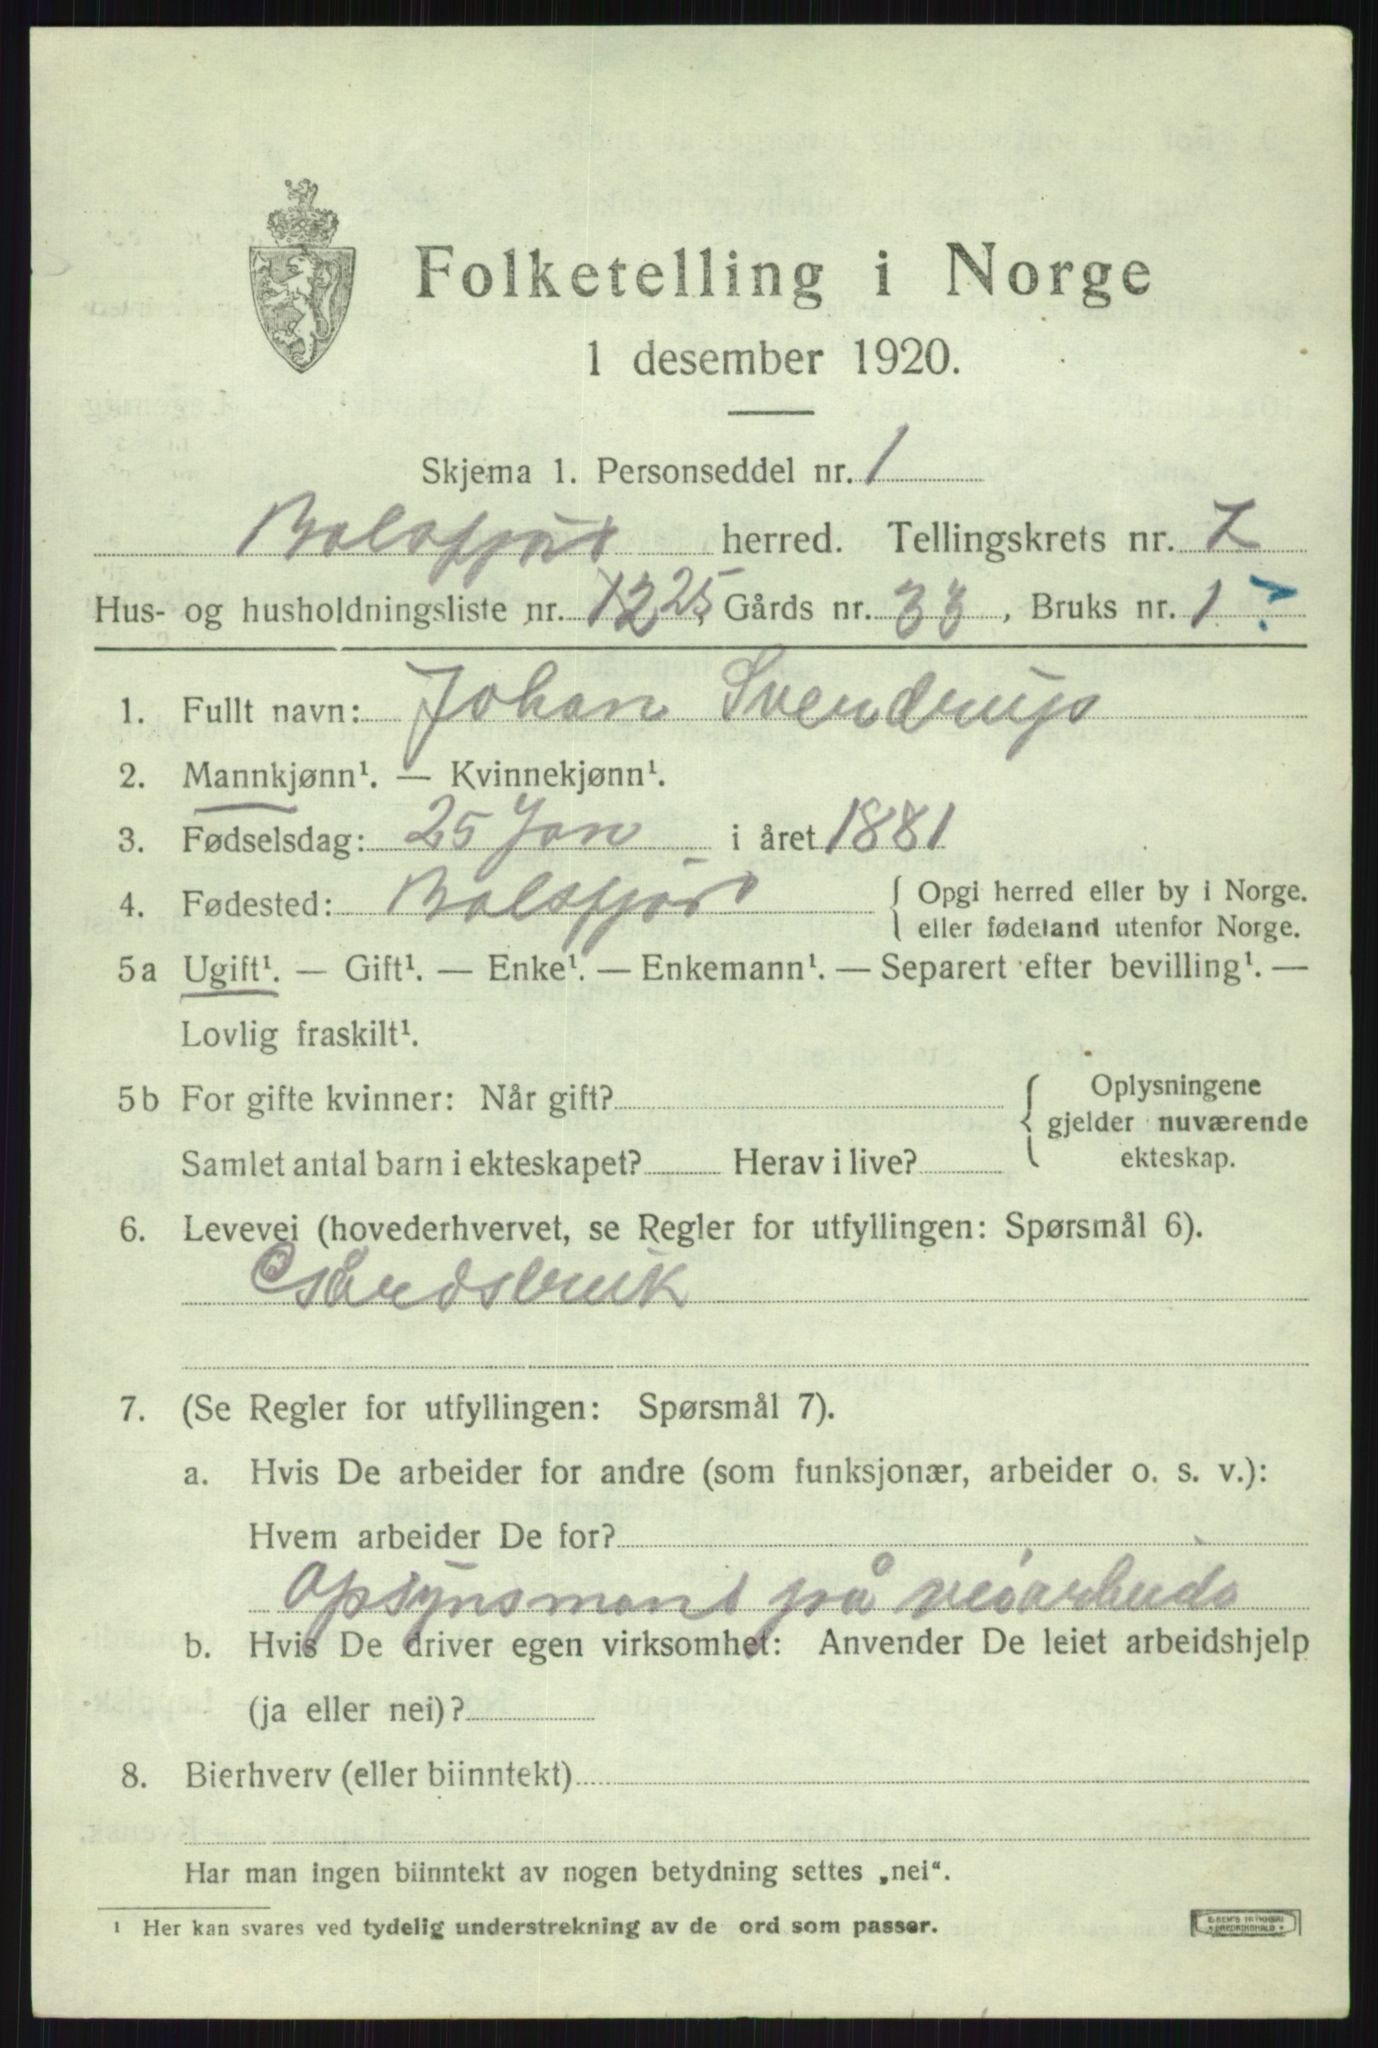 Folketelling i Norge
1 desember 1920.
Skjema 1. Personseddel nr. 1
Balsfjord herred. Tellingskrets nr. 7
Hus- og husholdningsliste nr. 12 25, Gårds nr. 33, Bruks nr. 1 ?
1. Fullt navn: Johan Svendrup
2. Mannkjønn¹. — Kvinnekjønn¹.
3. Fødselsdag: 25 Jan i året 1881
4. Fødested: Balsfjord { Opgi herred eller by i Norge.
eller fødeland utenfor Norge.
5a Ugift¹. — Gift¹. — Enke¹. — Enkemann¹. — Separert efter bevilling¹. —
Lovlig fraskilt¹.
5b For gifte kvinner: Når gift? { Oplysningene
gjelder nuværende
ekteskap.
Samlet antal barn i ekteskapet? Herav i live?
6. Levevei (hovederhvervet, se Regler for utfyllingen: Spørsmål 6).
Gårdsbruk
7. (Se Regler for utfyllingen: Spørsmål 7).
a. Hvis De arbeider for andre (som funksjonær, arbeider o. s. v.):
Hvem arbeider De for?
Opsynsmand på veiarbeide
b. Hvis De driver egen virksomhet: Anvender De leiet arbeidshjelp
(ja eller nei)?
8. Bierhverv (eller biinntekt)
Har man ingen biinntekt av nogen betydning settes „nei“.
¹ Her kan svares ved tydelig understrekning av de ord som passer.